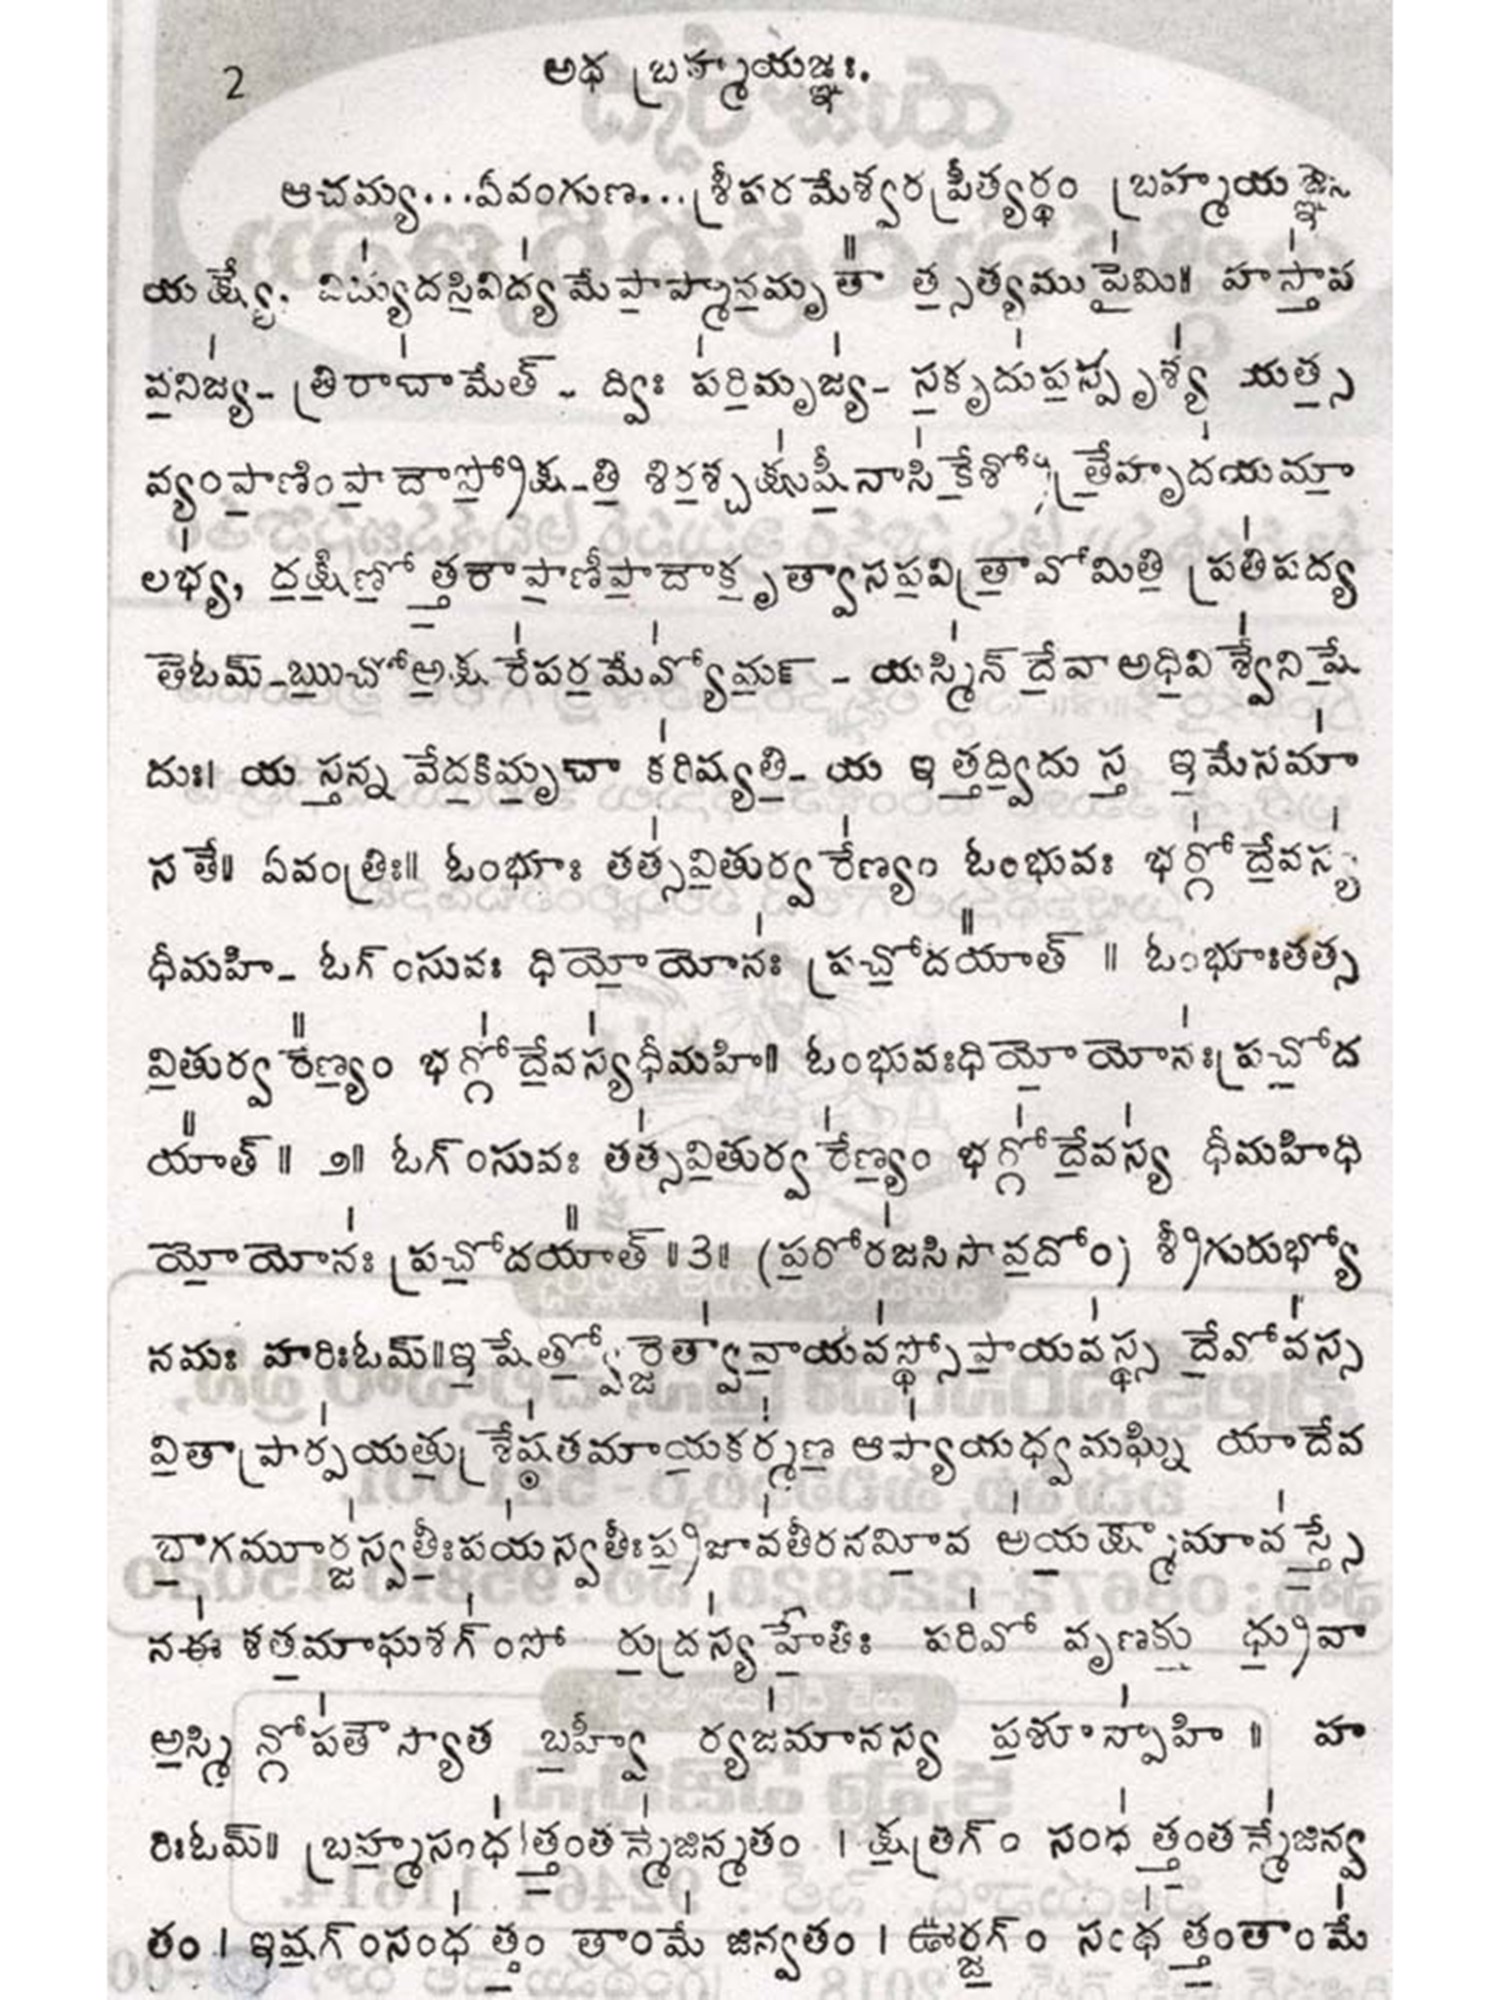 2
అథ బ్రహ్మయజ్ఞః.
ఆచమ్య...ఏవంగుణ...శ్రీపరమేశ్వరప్రీత్యర్థం బ్రహ్మయజ్ఞేన
యక్ష్యే. విద్యుదసివిద్యమేపాప్మానమృతా త్సత్యముపైమి॥ హస్తావ
వనిజ్య- త్రిరాచామేత్ - ద్విః పరిమృజ్య- సకృదుపస్పృశ్య యత్స
వ్యంపాణింపాదాప్రోక్ష-తి శిరశ్చక్షుషీనాసికేశ్రోత్రేహృదయమా
లభ్య, దక్షిణోత్తరౌపాణీపాదౌకృత్వాసపవిత్రావోమితి ప్రతిపద్య
తెఓమ్-ఋచోఅక్ష రేపరమేవ్యోమన్ - యస్మిన్ దేవా అధివిశ్వేనిషే
దుః। య స్తన్న వేదకిమృచా కరిష్యతి- య ఇత్తద్విదు స్త ఇమేసమా
సతే॥ ఏవంత్రిః॥ ఓంభూః తత్సవితుర్వరేణ్యం ఓంభువః భర్గోదేవస్య
ధీమహి- ఓగ్ంసువః ధియోయోనః ప్రచోదయాత్ ॥ ఓంభూఃతత్స
వితుర్వరేణ్యం భర్గోదేవస్యధీమహి॥ ఓంభువఃధియోయోనఃప్రచోద
యాత్॥ ౨॥ ఓగ్ంసువః తత్సవితుర్వరేణ్యం భర్గోదేవస్య ధీమహిధి
యోయోనః ప్రచోదయాత్॥3॥ (పరోరజసిసావదోం) శ్రీగురుభ్యో
నమః హరిఃఓమ్॥ఇషేత్వోర్జెత్వావాయవస్థోపాయవస్థ దేవోవస్స
వితాప్రార్పయతుశ్రేష్ఠతమాయకర్మణ ఆప్యాయధ్వమఘ్ని యాదేవ
భాగమూర్జస్వతీఃపయస్వతీఃప్రజావతీరనమీవ అయక్ష్మామావస్తే
నఈ శతమాఘశగ్ంసో రుద్రస్యహేతిః పరివో వృణక్తు ధ్రువా
అస్మి న్గోపతౌస్యాత బహ్వీ ర్యజమానస్య పశూన్పాహి॥ హ
రిఃఓమ్॥ బ్రహ్మసంధత్తంతన్మేజిన్మతం । క్షత్రగ్ం సంధ త్తంతన్మేజిన్వ
తం। ఇషగ్ంసంధ త్తం తాంమే జిన్వతం। ఊర్జగ్ం సంధ త్తంతాంమే